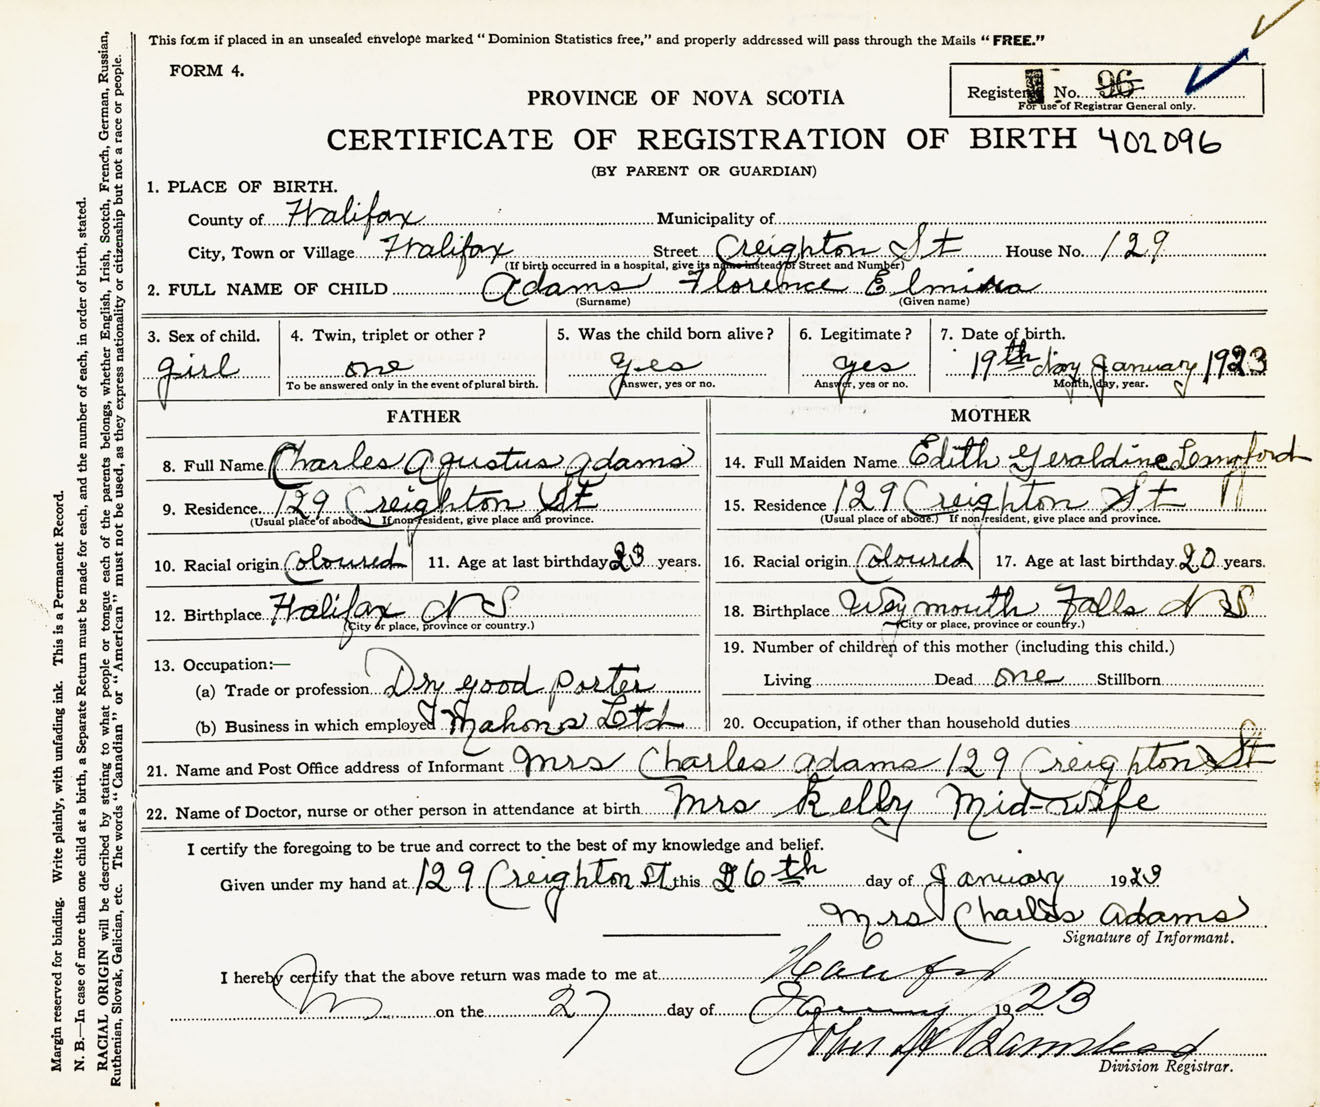 This form if placed in an unsealed envelope marked "Dominion Statistics free," and properly addressed will pass through the Mails "FREE."
FORM 4.
Registered No. 96
For use of Registrar General only.
PROVINCE OF NOVA SCOTIA
CERTIFICATE OF REGISTRATION OF BIRTH 402096
(BY PARENT OR GUARDIAN)
1. PLACE OF BIRTH.
County of Halifax Municipality of
City, Town or Village Halifax Street Creighton St House No. 129
(If birth occurred in a hospital, give its name instead of Street and Number)
2. FULL NAME OF CHILD Adams Florence Elmina
(Surname) (Given name)
3. Sex of child. 4. Twin, triplet or other? 5. Was the child born alive? 6. Legitimate? 7. Date of birth.
girl one yes yes 19th day January 1923
To be answered only in the event of plural birth. Answer, yes or no. Answer, yes or no. Month, day, year.
FATHER
8. Full Name Charles Agustus Adams
9. Residence 129 Creighton St
(Usual place of abode.) If non-resident, give place and province.
10. Racial origin Coloured 11. Age at last birthday 23 years.
12. Birthplace Halifax N S
(City or place, province or country.)
13. Occupation:—
(a) Trade or profession Dry good porter
(b) Business in which employed Mahons Ltd
MOTHER
14. Full Maiden Name Edith Geraldine Langford
15. Residence 129 Creighton St
(Usual place of abode.) If non-resident, give place and province.
16. Racial origin Coloured 17. Age at last birthday 20 years.
18. Birthplace Weymouth Falls N S
(City or place, province or country.)
19. Number of children of this mother (including this child.)
Living Dead one Stillborn
20. Occupation, if other than household duties
21. Name and Post Office address of Informant Mrs Charles Adams 129 Creighton St
22. Name of Doctor, nurse or other person in attendance at birth Mrs Kelly Mid-wife
I certify the foregoing to be true and correct to the best of my knowledge and belief.
Given under my hand at 129 Creighton St this 26th day of January 1923
Mrs Charles Adams
Signature of Informant.
I hereby certify that the above return was made to me at Halifax
on the 27 day of January 1923
John
Division Registrar.
Margin reserved for binding. Write plainly, with unfading ink. This is a Permanent Record.
N. B.—In case of more than one child at a birth, a Separate Return must be made for each, and the number of each, in order of birth, stated.
RACIAL ORIGIN will be described by stating to what people or tongue each of the parents belongs, whether English, Irish, Scotch, French, German, Russian,
Ruthenian, Slovak, Galician, etc. The words "Canadian" or "American" must not be used, as they express nationality or citizenship but not a race or people.